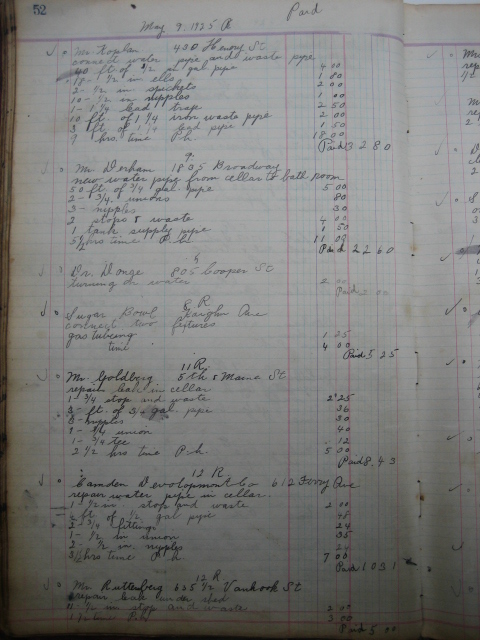 52
May 9. 1925 R Paid
Mr Kaplan 430 Henry St
connect water pipe and waste pipe
40 ft of 1/2 in gal. pipe 4 00
18 - 1/2 in ells 1 80
2 - 1/2 in spickets 2 00
10 - 1/2 in nipples 1 00
1 - 1 1/4 lead trap 2 50
10 ft. of 1 1/4 iron waste pipe 2 00
3 ft of 1 1/4 lead pipe 1 50
9 hrs. time P.h. 18 00
Paid 32 80
9.
Mr Derham 1805 Broadway
new water pipe from cellar to bath room
50 ft of 3/4 gal. pipe 5 00
2 - 3/4. unions 80
3 - nipples 30
2 stops & waste 4 00
1 tank supply pipe 1 50
5 1/2 hrs time P.h. 11 00
Paid 22 60
Dr. Donge 805 Cooper St
turning on water 2 00
Paid 2 00
8 R
Sugar Bowl Ave
connect two fixtures
gas tubeing 1 25
time 4 00
Paid 5 25
11 R.
Mr. Goldberg 5th & Mama St
repair leak in cellar
1 - 3/4 stop and waste 2 25
3 - ft. of 3/4 gal. pipe 36
nipples 30
union 40
1 - 3/4 tee 12
2 1/2 hrs time P.h. 5 00
Paid 8.43
12 R.
Camden Devolopment Co 612 Ferry Ave
repair water pipe in cellar.
1 - 1/2 in stop and waste 2 00
4 ft of 1/2 gal pipe 48
2 - 3/4 fittings 24
1 - 1/2 in union 35
2 - 1/2 in. nipples 24
3 1/2 hrs time P.h 7 00
Paid 10 31
12 R
Mr Ruttenberg 635 1/2 Vanhook St
repair leak under shed
1/2 in stop and waste 2 00
1 1/2 time P.h. 3 00
Paid 5 00